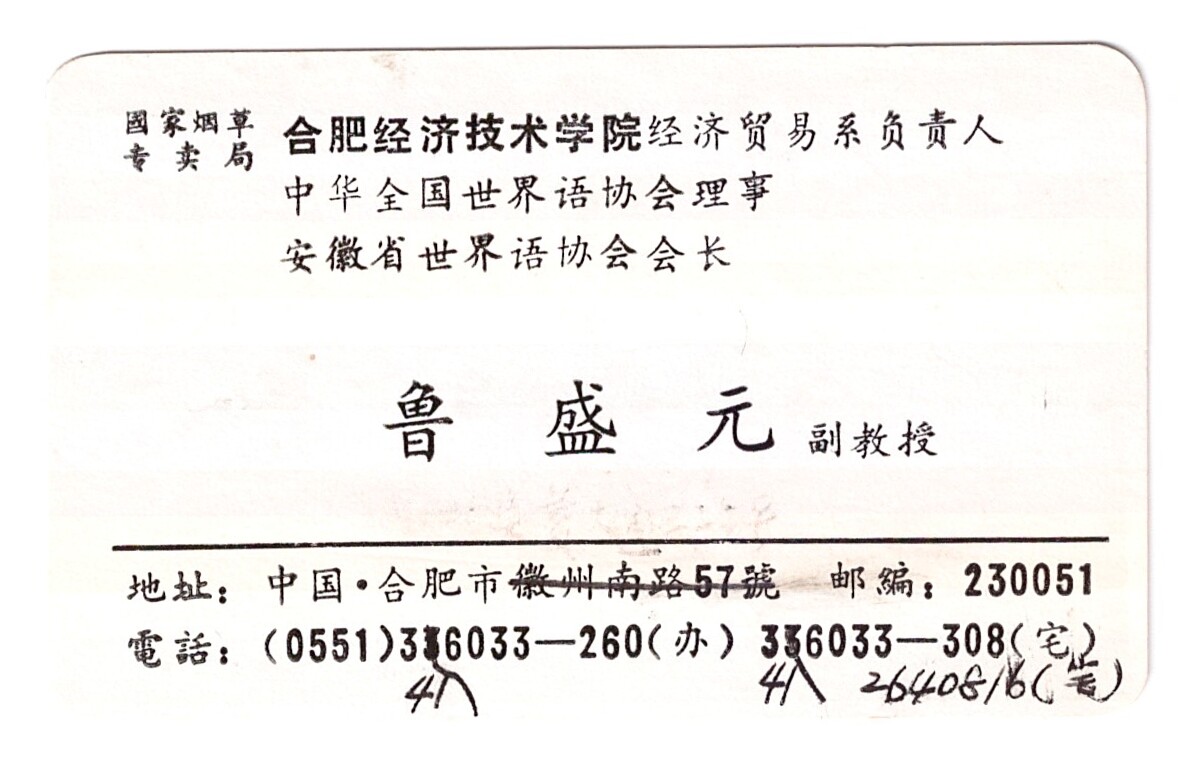 國家烟草专卖局 合肥经济技术学院经济贸易系负责人
中华全国世界语协会理事
安徽省世界语协会会长
鲁盛元 副教授
地址：中国·合肥市徽州南路57號 邮编：230051
電話：(0551)336033—260(办) 336033—308(宅)
41 41 2640816(宅)